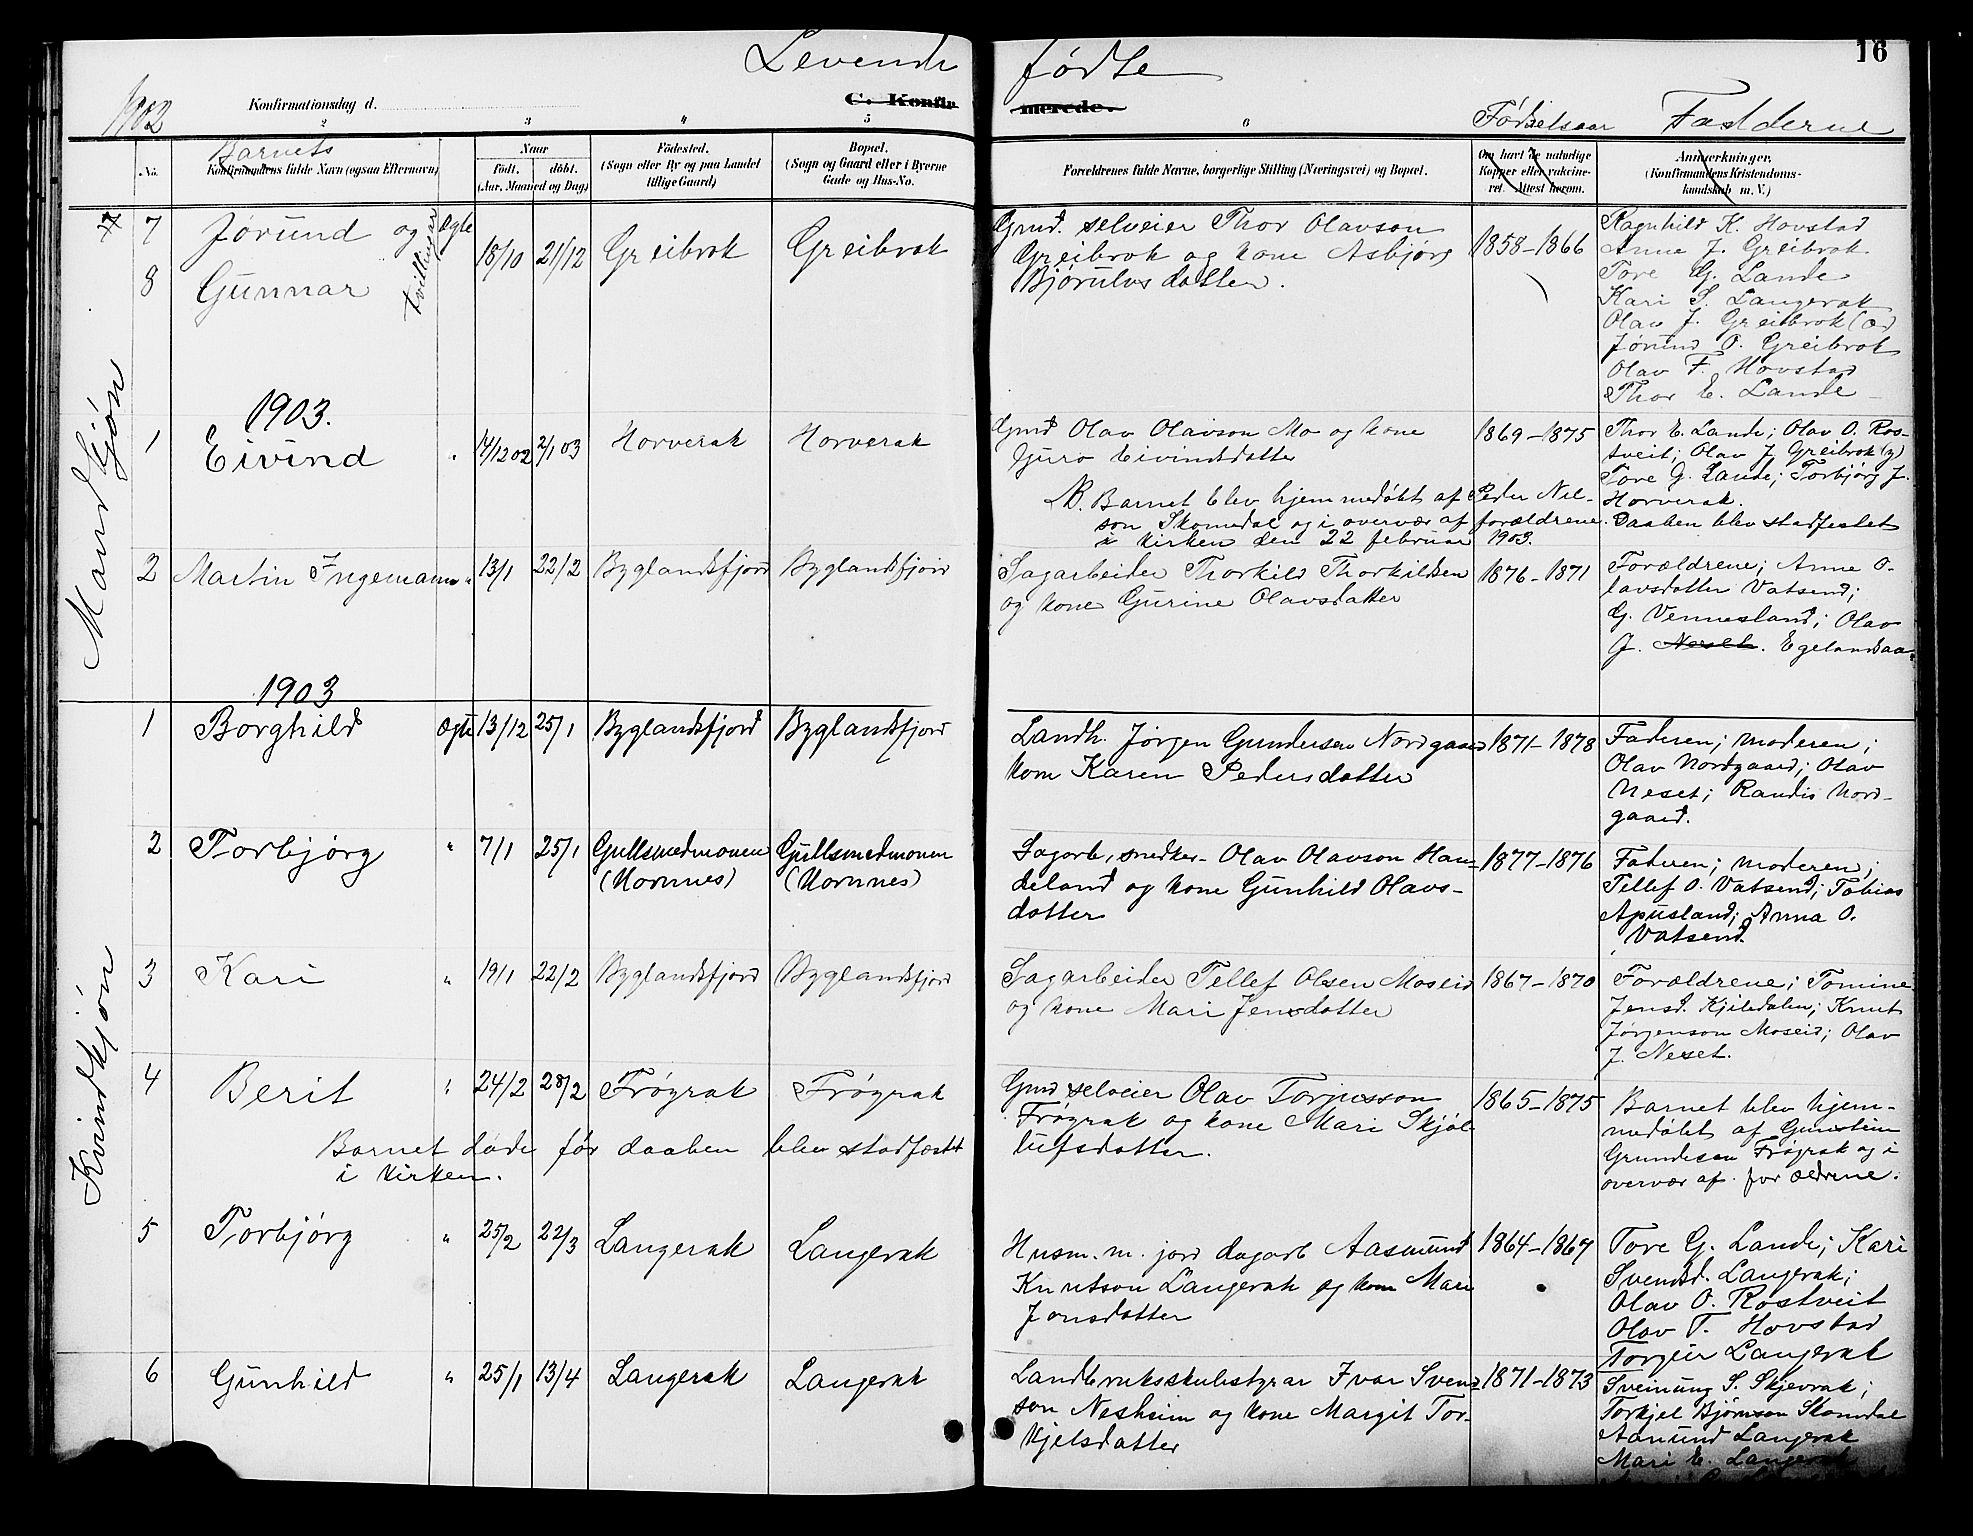 Levende fødte
16
1902
Konfirmationsdag d.
C. Konfirmerede.
Fødselsaar
Fadderne
2 3 4 5 6
Barnets
No.
Konfirmandens fulde Navn (ogsaa Efternavn)
Naar
født. døbt.
(Aar, Maaned og Dag)
Fødested.
(Sogn eller By og paa Landet
tillige Gaard)
Bopæl.
(Sogn og Gaard eller i Byerne
Gade og Hus-No.
Forældrenes fulde Navne, borgerlige Stilling (Næringsvei) og Bopæl.
Om havt de naturlige
Kopper eller vakcine-
ret. Attest herom.
Anmerkninger.
(Konfirmandens Kristendoms-
kundskab m. V.)
Mandkjøn
7 Jørund og Ægte
8 Gunnar
Tvillinger
18/10 21/12 Greibrok Greibrok
Gmd. selveier Thor Olavson
Greibrok og kone Asbjørg
Bjørulvsdatter.
1858-1866
Ragnhild K. Hovstad
Anne J. Greibrok
Tore G. Lande
Kari S. Langerak
Olav J. Greibrok (æ)
Jørund O. Greibrok
Olav T. Hovstad
Thor E. Lande
1903.
1 Eivind " 14/12 02 2/1 03 Horverak Horverak
Gmd Olav Olavson Mo og kone
Guro Eivindsdatter
1869-1875
Thor E. Lande; Olav O. Ros-
tveit; Olav J. Greibrok (y)
Tore G. Lande; Torbjørg J.
Horverak.
NB. Barnet blev hjemmedøbt af Peder Nil-
son Skomedal og i overvær af forældrene. Daaben blev stadfestet
i kirken den 22 februar 1903.
2 Martin Ingemann " 13/1 22/2 Byglandsfjord Byglandsfjord
Sagarbeider Thorkild Thorkildsen
og kone Gurine Olavsdatter
1876-1871
Forældrene; Anne O-
lavsdatter Vatsend;
G. Vennesland; Olav
G. Neset. Egelandsaa.
Kvindkjøn
1903
1 Borghild Ægte 13/12 25/1 Byglandsfjord Byglandsfjord
Landh. Jørgen Gundersen Nordgaard
kone Karen Pedersdatter
1871-1878
Faderen; moderen;
Olav Nordgaard; Olav
Neset; Randis Nord-
gaard.
2 Torbjørg " 7/1 25/1 Gullsmedmonen Gullsmedmonen
(Hornnes) (Hornnes)
Sagarb, snedker- Olav Olavson Hau-
deland og kone Gunhild Olavs-
datter
1877-1876
Faderen; moderen;
Tellef O. Vatsend; Tobias
Apusland; Anna O.
Vatsend.
3 Kari " 19/1 22/2 Byglandsfjord Byglandsfjord
Sagarbeider Tellef Olsen Moseid
og kone Mari Jensdatter
1867-1870
Forældrene; Tomine
Jensd. Kjiledalen; Knut
Jørgenson Moseid; Olav
J. Neset.
4 Berit " 24/2 28/2 Frøyrak Frøyrak
Gmd selveier Olav Torjusson
Frøyrak og kone Mari Skjøl-
lufsdatter.
1865-1875
Barnet blev hjem-
medøbt af Gunstein
Gundesen Frøyrak og i
overvær af forældrene.
Barnet døde før daaben blev stadfæstet
i kirken.
5 Torbjørg " 25/2 22/3 Langerak Langerak
Husm. m. jord dagarb Aasmund
Knutson Langerak og kone Mari
Jonsdatter
1864-1867
Tore G. Lande; Kari
Svendsd. Langerak;
Olav O. Rostveit
Olav T. Hovstad
Torgeir Langerak
6 Gunhild " 25/1 13/4 Langerak Langerak
Landbruksskulestyrar Ivar Svend-
son Nesheim og kone Margit Tor-
kjelsdatter
1871-1873
Sveinung S. Skjevrak;
Torkjel Bjørnson Skomdal
Aanund Langerak
Mari E. Langerak